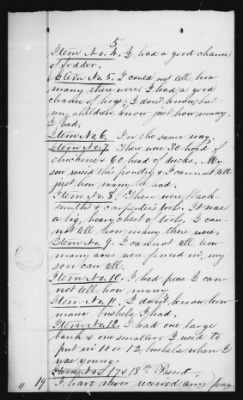 5
Item No. 4. I had a good chance
of fodder.
Item No. 5. I could not tell how
many there were I had a good
chance of hogs, I don't know, but
my children know just how many
I had.
Item No. 6. In the same way.
Item No. 7. There was 30 head of
chickens & 60 head of ducks. My
son used this poultry & I cannot tell
just how many he had.
Item No. 8. There were black-
smith's & carpenter's tools. It was
a big, heavy chest of tools, I can
not tell how many there were.
Item No. 9. I cannot tell how
many acres were fenced in, my
son can tell.
Item No. 10. I had peas I can
not tell how many.
Item No. 11. I don't know how
many bushels I had.
Item No. 12. I had one large
bank & one smaller I used to
put in 10 or 12 bushels when I
was young.
18th Resend.
" 19 I have never received any pay